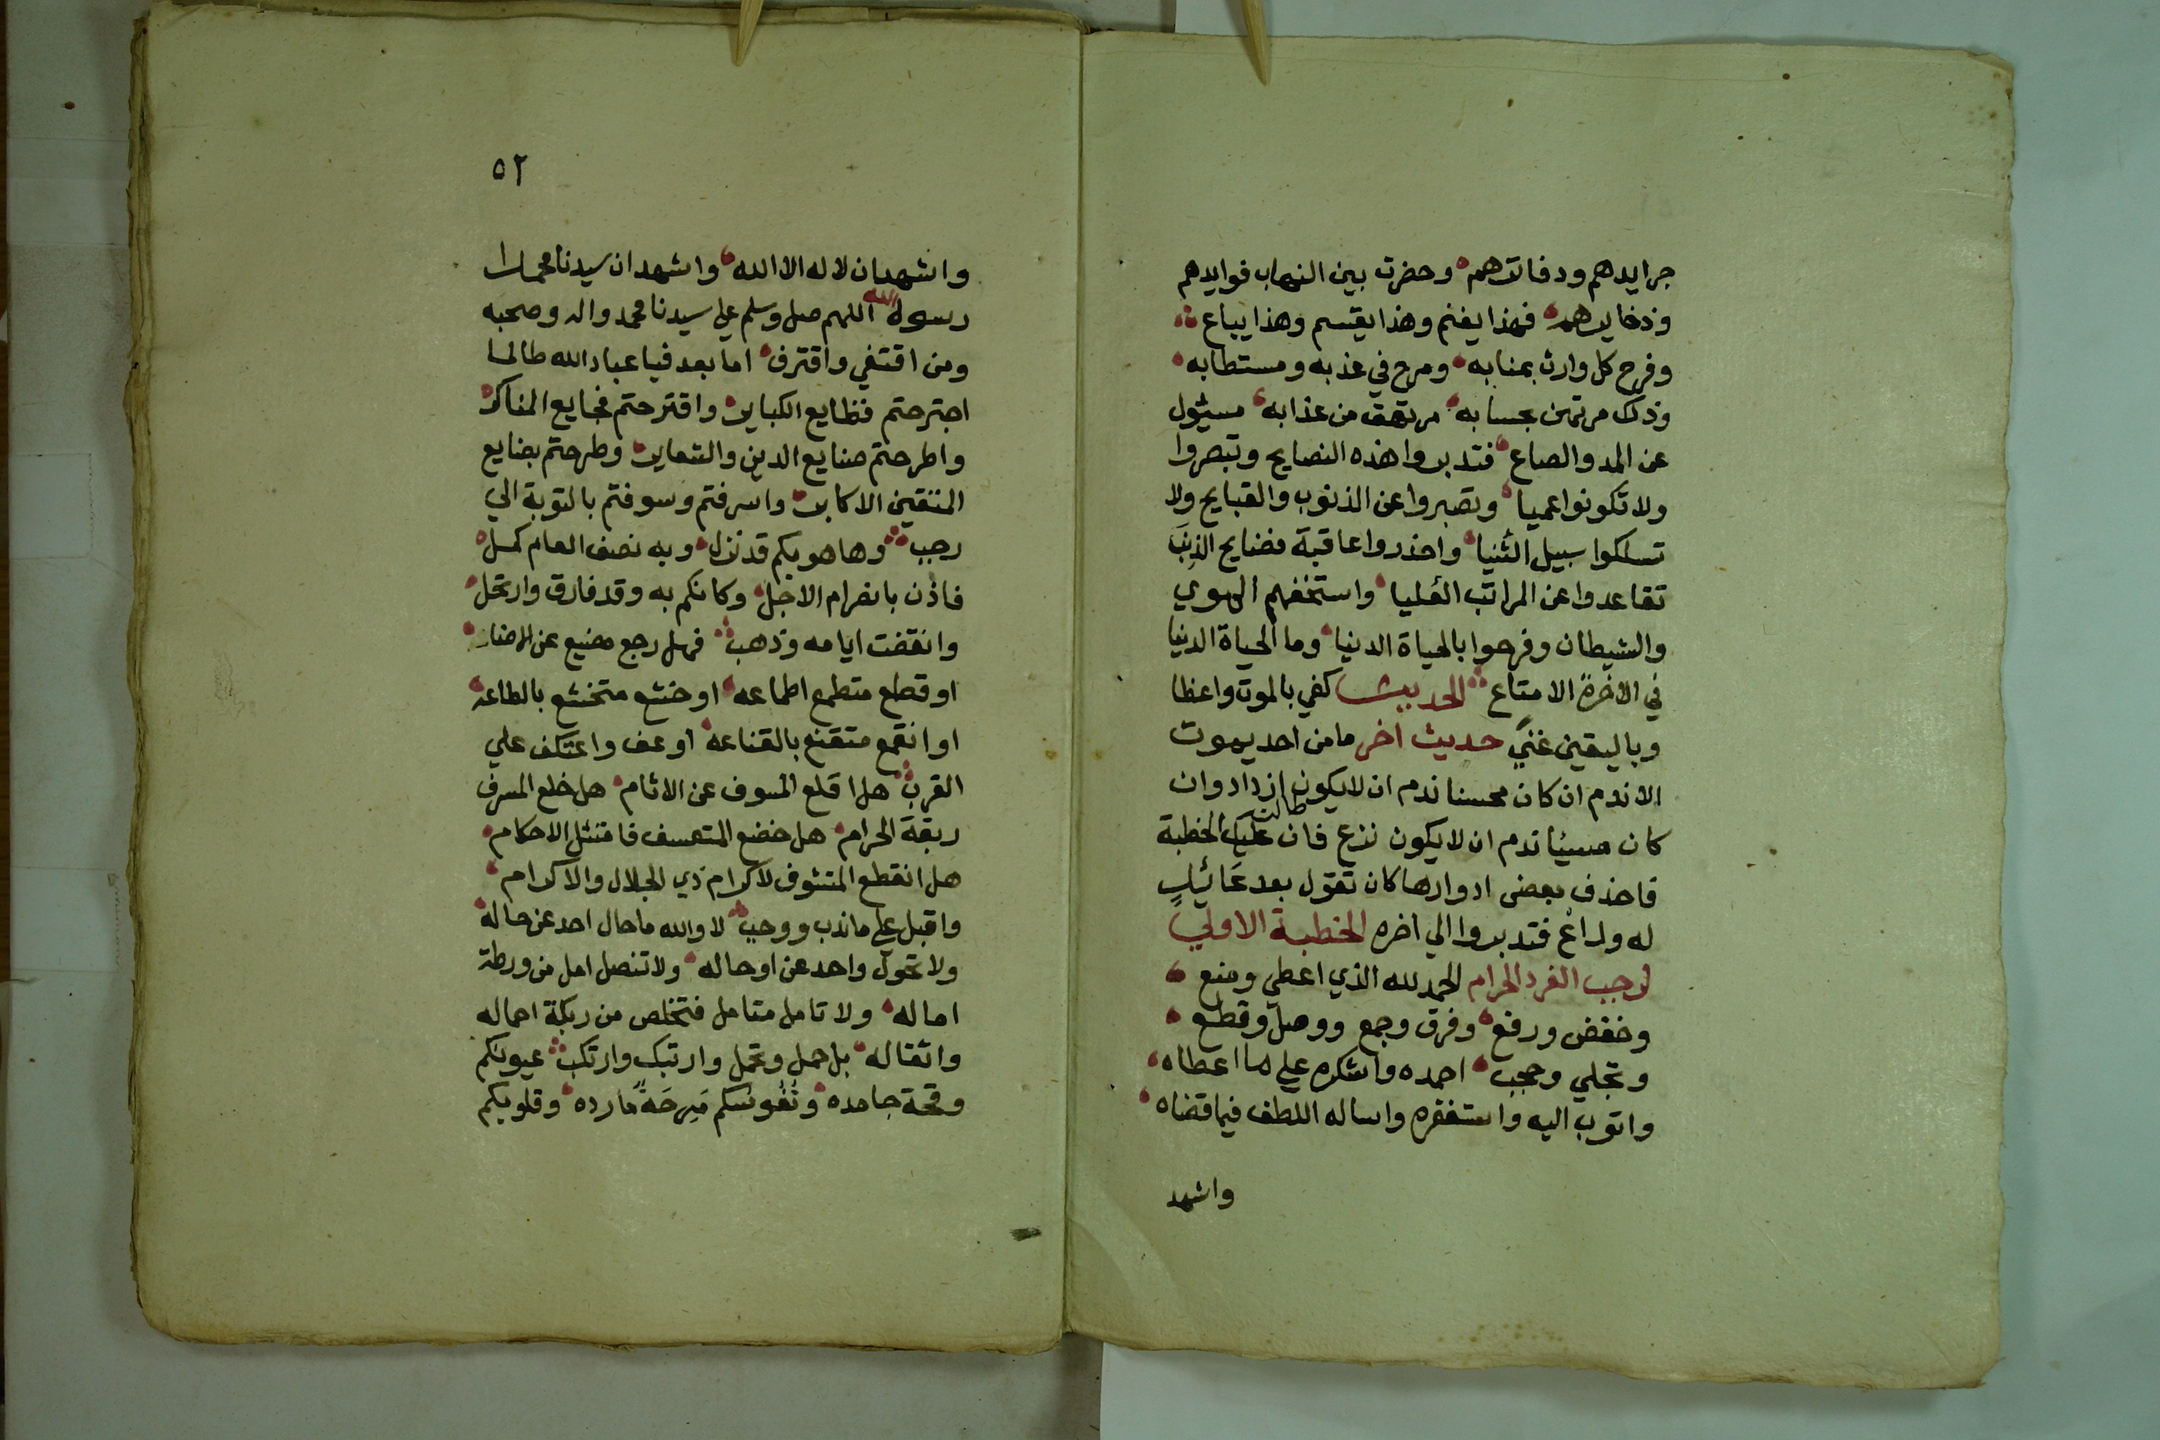 جرايدهم ودفاترهم وحضرت بين النهاب فوايدهم
وذخايرهم فهذا يغنم وهذا يقسم وهذا يباع
وفرح كل وارث بمنابه ومرح في عذبه ومستطابه
وذلك مرتهن بحسابه مرتهق من عذابه مسئول
عن المد والصاع فتدبروا هذه النصايح وتبصروا
ولا تكونوا عميا وتصبروا عن الذنوب والقبايح ولا
تسلكوا سبيل الثنيا واحذروا عاقبة فضايح الذين
تقاعدوا عن المراتب العليا واستخفهم الهوي
والشيطان وفرحوا بالحياة الدنيا وما الحياة الدنيا
في الاخرة الا متاع الحديث كفي بالموت واعظا
وباليقين غني حديث اخر ما من احد يموت
الا ندم ان كان محسنا ندم ان لا يكون ازداد وان
كان مسيئا ندم ان لا يكون نزع فان طالت عليك الخطبة
فاحذف بعض ادوارها كان تقول بعد
له وداع فتدبروا الي اخره الخطبة الاولي
لرجب الفرد الحرام الحمد لله الذي اعطي ومنع
وخفض ورفع وفرق وجمع ووصل وقطع
وتجلي وحجب احمده واشكره علي ما اعطاه
واتوب اليه واستغفره واساله اللطف فيما قضاه
واشهد
٥٢
واشهد ان لا اله الا الله واشهد ان سيدنا محمدا
رسول الله اللهم صل وسلم علي سيدنا محمد واله وصحبه
ومن اقتفي واقترف اما بعد فيا عباد الله طالما
اجترحتم فظايع الكباير واقترحتم فجايع المناكر
واطرحتم صنايع الدين والشعاير وطرحتم بضايع
المتقين الاكابر واسرفتم وسوفتم بالتوبة الي
رجب وها هو بكم قد نزل وبه نصف العام كمل
فاذن بانصرام الاجل وكانكم به وقد فارق وارتحل
وانقضت ايامه وذهب فهل رجع مضيع عن
او قطع متطمع اطماعه او خشع متخشع بالطاعه
او انقمع متقنع بالقناعه او عف واعتكف علي
القرب هل اقلع المسوف عن الاثام هل خلع المسرف
ربقة الحرام هل خضع المتعسف فامتثل الاحكام
هل انقطع المتشوف لاكرام ذي الجلال والاكرام
واقبل علي ما ندب ووجب لا والله ما حال احد عن حاله
ولا تحول واحد عن اوحاله ولا تنصل امل من ورطة
اماله ولا تامل متامل فتخلص من ربكة احماله
واثقاله بل حمل وتحمل وارتبك وارتكب عيونكم
وقحة جامده ونفوسكم مرحة مارده وقلوبكم